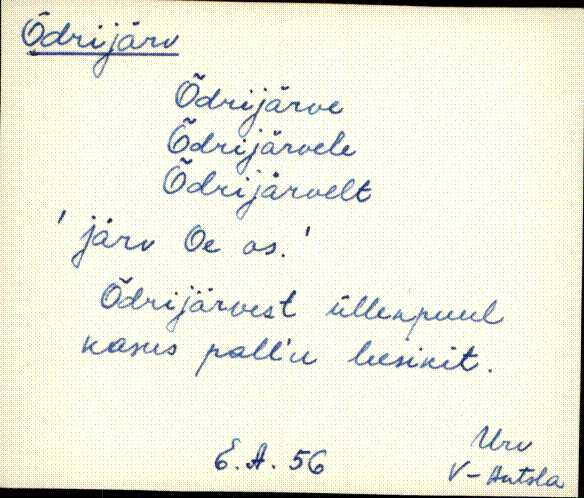 Õdrijärv
Õdrijärve
Õdrijärvele
Õdrijärvelt
' järv Oe as.'
Õdrijärvest üllenpuul
kasus pall'u leesikit.
E.A. 56
Urv
V-Antsla